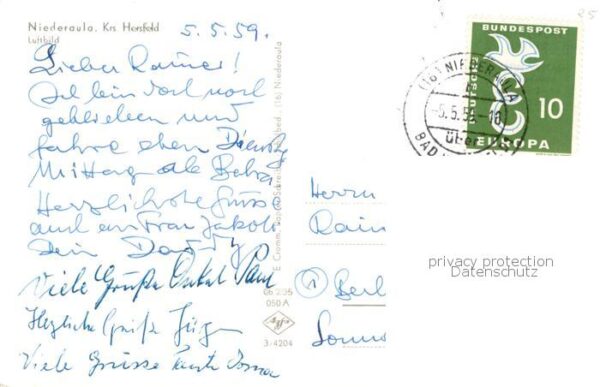 Niederaula. Krs Hersfeld
Luftbild
5.5.59.
Lieber Rainer!
Ich bin doch noch
geblieben und
fahre eben Dienstg
Mittag ab Bebra
Herzlichste Grüsse
auch an Frau Jakob
Dein Daddy
Viele Grüße Onkel Paul
Herzliche Grüße Jürgen
Viele Grüsse Tante Irma
E. Cramm, Papier-Schreibwaren (16) Niederaula
06 2/35
050 A
Agfa
3-4204
Herrn
Rain
① Berl
Sonn
25
DEUTSCHE
BUNDESPOST
10
EUROPA
(16) NIEDERAULA
-5.5.59.-16
über
BAD
privacy protection
Datenschutz